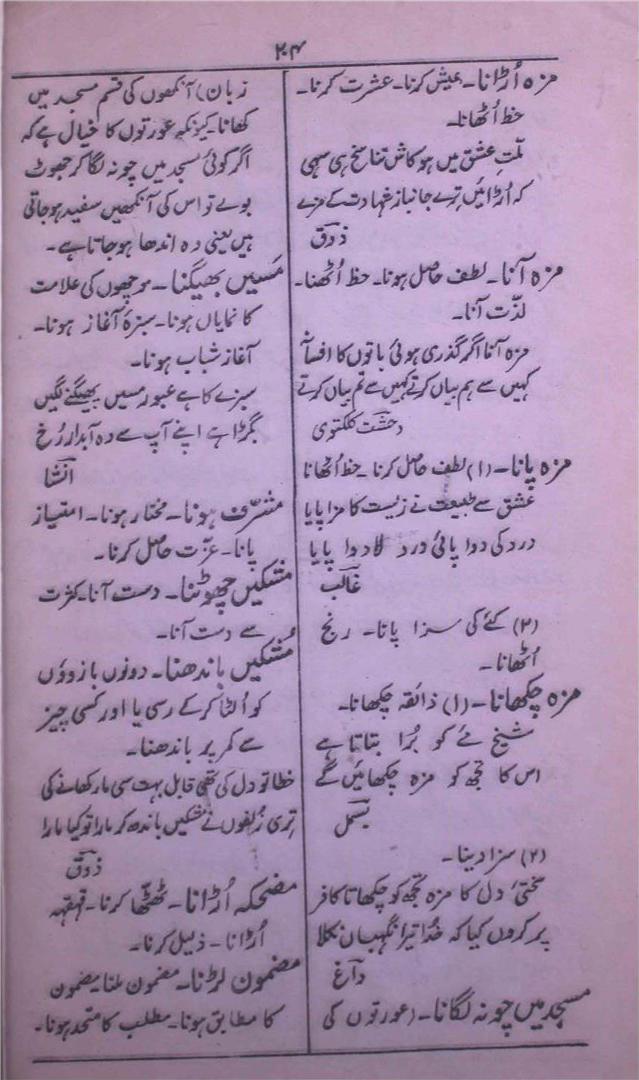 ۲۰۴
مزہ اُڑانا۔ عیش کرنا۔ عشرت کرنا۔
حظ اُٹھانا۔
ملّتِ عشق میں ہو کاش تناسخ ہی سہی
کہ اُڑائیں ترے جانباز شہادت کے مزے
ذوق
مزہ آنا۔ لطف حاصل ہونا۔ حظ اُٹھنا۔
لذّت آنا۔
مزہ آنا اگر گذری ہوئی باتوں کا افسانہ
کہیں سے ہم بیاں کرتے کہیں سے تم بیاں کرتے
وحشت کلکتوی
مزہ پانا۔ (۱) لطف حاصل کرنا۔ حظ اُٹھانا
عشق سے طبیعت نے زیست کا مزا پایا
درد کی دوا پائی درد لا دوا پایا
غالب
(۲) کئے کی سزا پانا۔ رنج
اُٹھانا۔
مزہ چکھانا۔ (۱) ذائقہ چکھانا۔
شیخ مے کو بُرا بتاتا ہے
اس کا تجھ کو مزہ چکھائیں گے
بسمل
(۲) سزا دینا۔
سختیٔ دل کا مزہ تجھ کو چکھاتا کافر
پر کروں کیا کہ خدا تیرا نگہبان نکلا
داغ
مسجد میں چونہ لگانا۔ (عورتوں کی
زبان) آنکھوں کی قسم مسجد میں
کھانا۔ کیونکہ عورتوں کا خیال ہے کہ
اگر کوئی مسجد میں چونہ لگا کر جھوٹ
بولے تو اس کی آنکھیں سفید ہو جاتی
ہیں یعنی وہ اندھا ہو جاتا ہے۔
مَسیں بھیگنا۔ موچھوں کی علامت
کا نمایاں ہونا۔ سبزہ آغاز ہونا۔
آغاز شباب ہونا۔
سبزے کا ہے عبور مسیں بھیگنے لگیں
بگڑا ہے اپنے آپ سے وہ آبدار رُخ
انشا
مشرّف ہونا۔ مختار ہونا۔ امتیاز
پانا۔ عزّت حاصل کرنا۔
مشکیں چھوٹنا۔ دست آنا۔ کثرت
سے دست آنا۔
مُشکیں باندھنا۔ دونوں بازوؤں
کو اُلٹا کر کے رسی یا اور کسی چیز
سے کمر پر باندھنا۔
خطا تو دل کی تھی قابل بہت سی مار کھانے کی
تری زلفوں نے مشکیں باندھ کر مارا تو کیا مارا
ذوق
مضحکہ اُڑانا۔ ٹھٹھا کرنا۔ قہقہہ
اُڑانا۔ ذلیل کرنا۔
مضمون لڑنا۔ مضمون ملنا۔ مضمون
کا مطابق ہونا۔ مطلب کا متحد ہونا۔